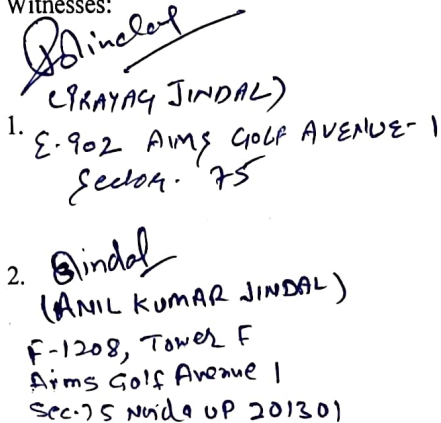 Witnesses:
PJindal
(PRAYAG JINDAL)
1. E-902 AIMS GOLF AVENUE-1
Sector. 75
2. Jindal
(ANIL KUMAR JINDAL)
F-1208, Tower F
Aims Golf Avenue 1
Sec.75 Noida UP 201301